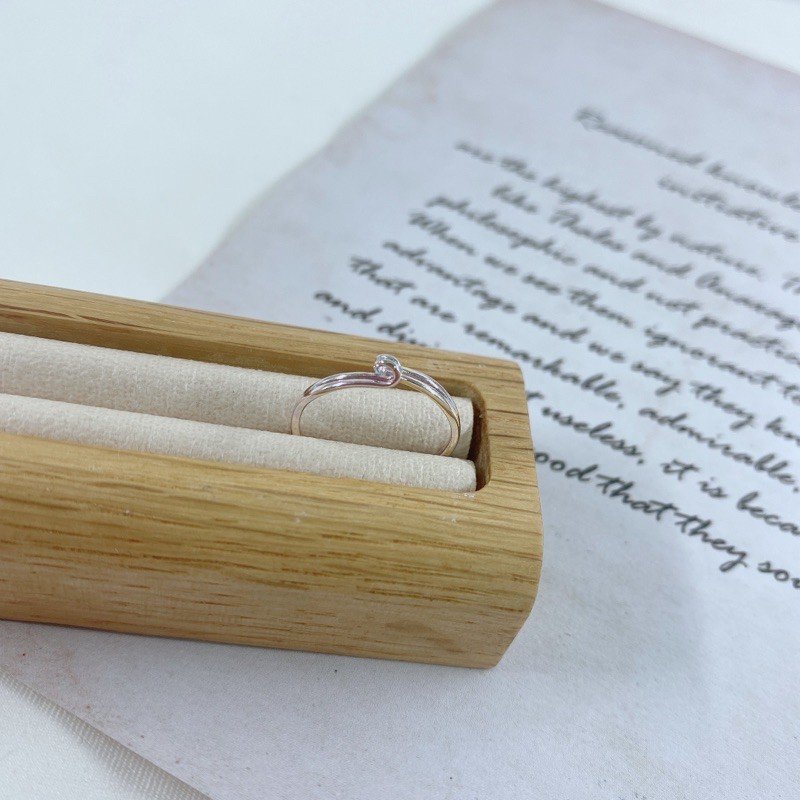 Reasoned knowle
initiative
are the highest by nature. T
like Thales and Anaxag
philosophic and not practic
When we see them ignorant to
advantage and we say they kn
that are remarkable, admirable,
and di useless, it is beca
ood that they so